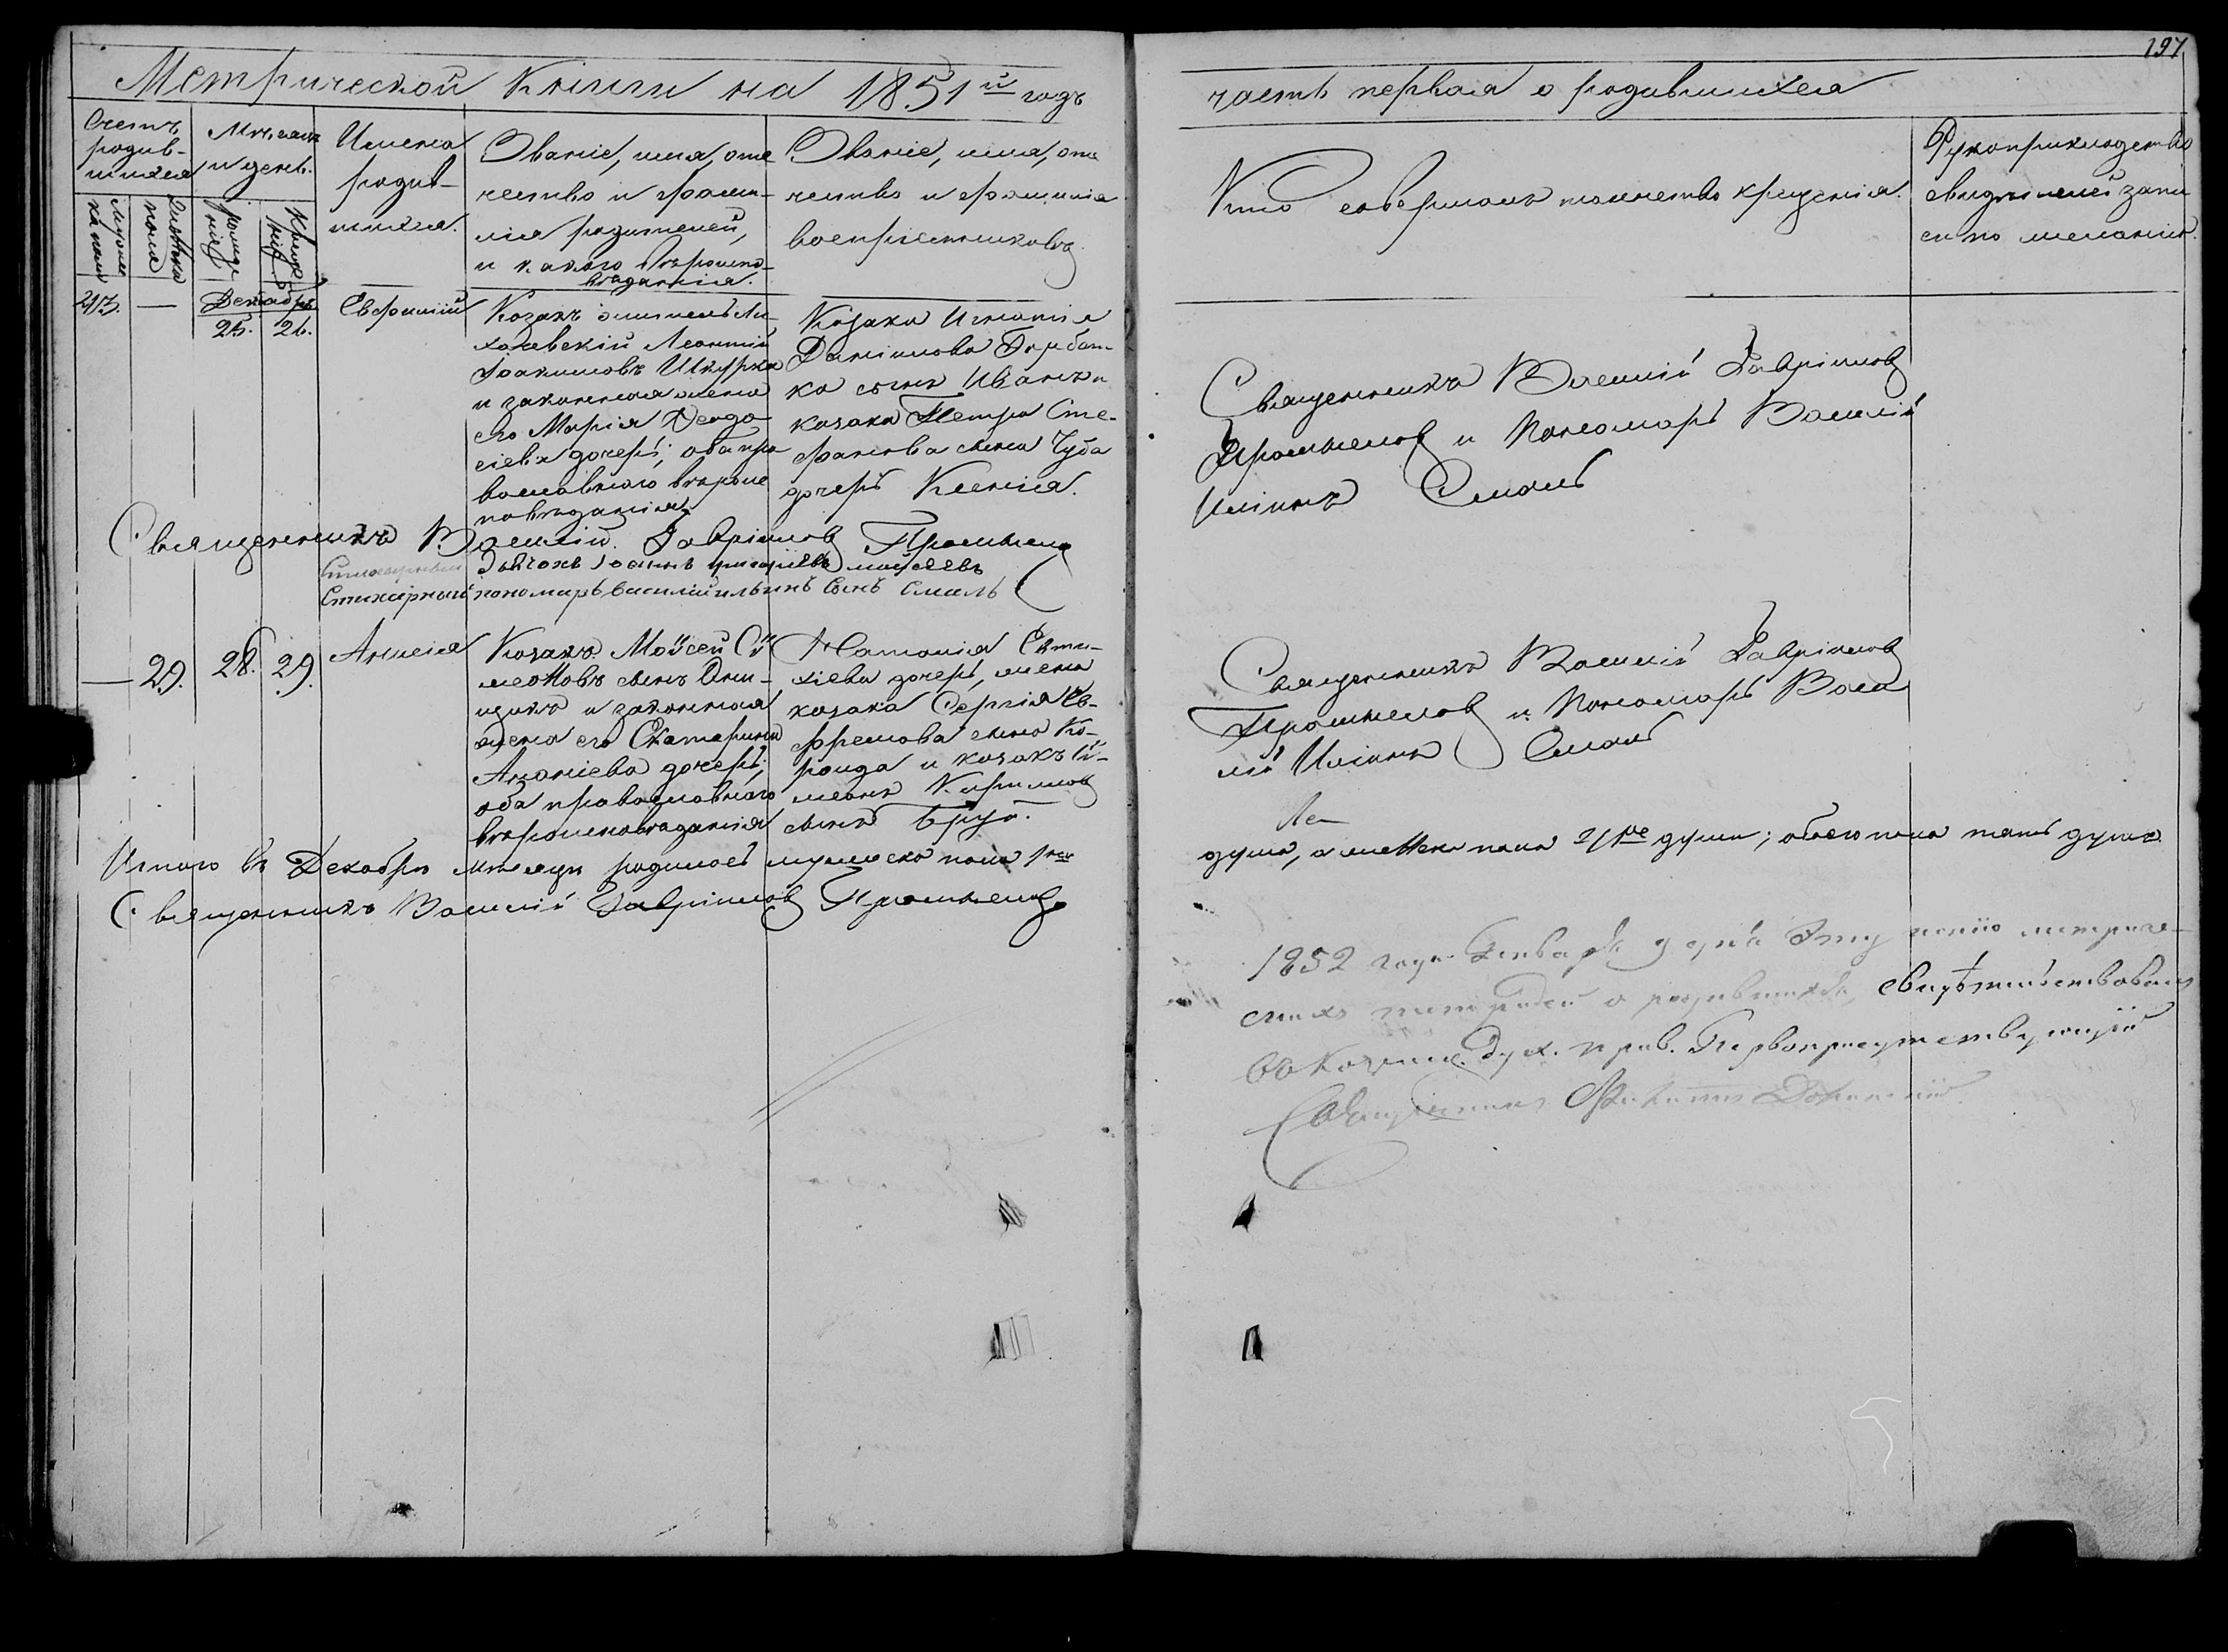 197
Метрической Книги на 1851й годъ
часть первая о родившихся
Счетъ родив-шихся
Мѣсяцъ и день.
Имена родив-шихся.
Званіе, имя, оте-
чество и фами-
лія родителей,
и какого вѣроиспо-
вѣданія.
Званіе, имя, оте
чество и фамилія
воспріемниковъ
Кто совершалъ таинство крещенія.
Рукоприкладство
свидѣтелей запи
си по желанію.
Мужеска пола
Женска пола
рожденія
Крещенія
— Декабрь
25. 26.
Евфимій
Козакъ
Леонтій
Іоакимовъ Шкурка
и законная жена
его Марія Ѳеодо
сіева дочерь; оба пра
вославнаго вѣроис
повѣданія
Козака Игнатія
Даніилова
ка сынъ Иванъ и
козака Петра Сте-
фанова сына Чуба
дочерь Ксенія.
Священникъ Василій Гавріиловъ
и Пономарь Василій
Иліинъ Смаль
Священникъ Василій Гавріиловъ
Іоаннъ григоріевъ моисеевъ
Стихарный пономарь василій ильинъ сынъ смаль
— 29. 28. 29.
Анисія
Козакъ Моѵсей Си
меоновъ сынъ Они-
щикъ и законная
жена его Екатерина
Ананіева дочерь;
оба православнаго
вѣроисповѣданія
Наталія Евти-
хіева дочерь, жена
козака Сергія Ев-
фремова сына Ко-
ранда и козакъ Си-
меонъ Кириловъ
сынъ
Священникъ Василій Гавріиловъ
и Пономарь Васи
лій Иліинъ Смаль
Итого въ Декабрѣ мѣсяцѣ родилось мужеска пола 1на
душа, а женска пола души; обоего пола пять душъ.
Священникъ Василій Гавріиловъ
1852 года Января 9 дня Эту копію метриче-
скихъ тетрадей о родившихся, свидѣтельствовалъ
дух. прав. Первоприсутствующій
Священникъ